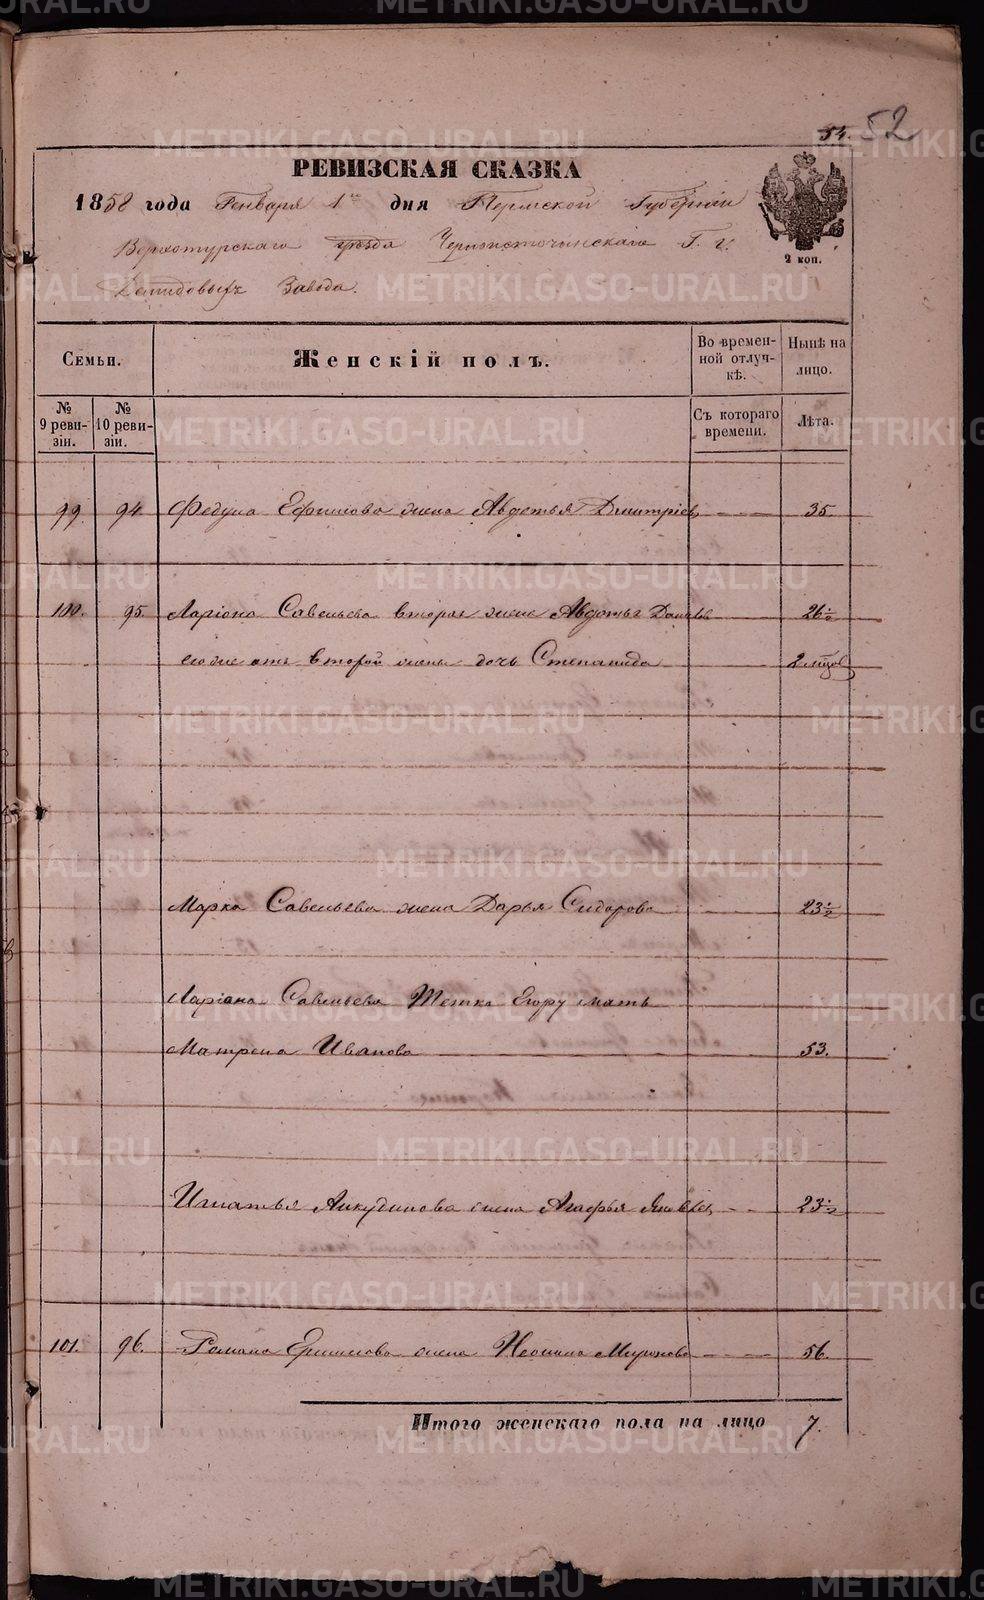 54. 52
РЕВИЗСКАЯ СКАЗКА
1858 года Генваря 1го дня Пермской Губерніи
Верхотурскаго уѣзда Черноисточинскаго Г. г.
Демидовыхъ Завода.
2 коп.
Семьи.
Женскій полъ.
Во времен-
ной отлуч-
кѣ.
Нынѣ на
лицо.
№
9 реви-
зіи.
№
10 реви-
зіи.
Съ котораго
времени.
Лѣта.
99. 94. Федула Ефимова жена Авдотья Дмитріев 35.
100. 95. Ларіона Савельева вторая жена Авдотья 26½
его же отъ второй жены дочь Степанида 2 мѣсов
Марка Савельева жена Дарья Сидорова 23½
Ларіона Савельева Тетка Егору мать
Матрена Иванова 53.
Игнатья Анкудинова жена Агафья Яковлев 23½
101. 96. Романа жена Неонила Миронова 56.
Итого женскаго пола на лицо 7.
METRIKI.GASO-URAL.RU